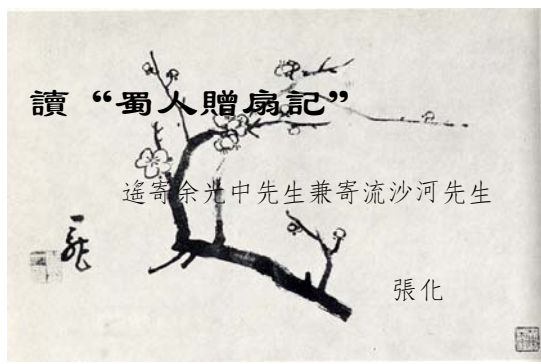 讀“蜀人贈扇記”
遙寄余光中先生兼寄流沙河先生
張化